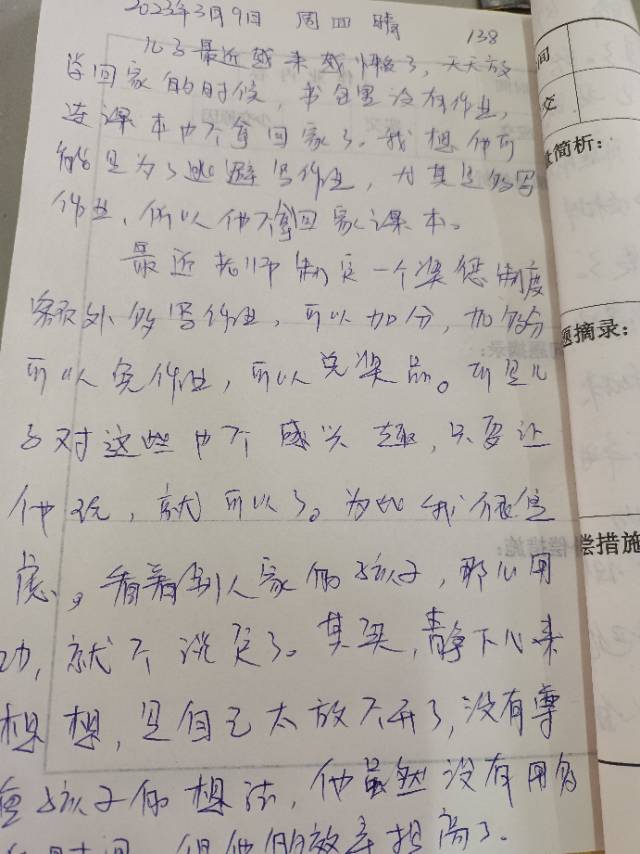 2023年3月9日 周四 晴
138
儿子最近越来越懒了,天天放
学回家的时候,书包里没有作业,
连课本也不拿回家了。我想他可
能是为了逃避写作业,尤其是多写
作业,所以他不拿回家课本。
最近老师制定一个奖惩制度
额外多写作业,可以加分,加的分
可以免作业,可以兑奖品。可是儿
子对这些也不感兴趣,只要让
他玩,就可以了。为此我很焦
虑。看着别人家的孩子,那么用
功,就不说页了。其实,静下心来
想想,是自己太放不开了,没有尊
重孩子的想法,他虽然没有用多
时间,但他的效率提高了。
间
交
简析:
题摘录:
偿措施